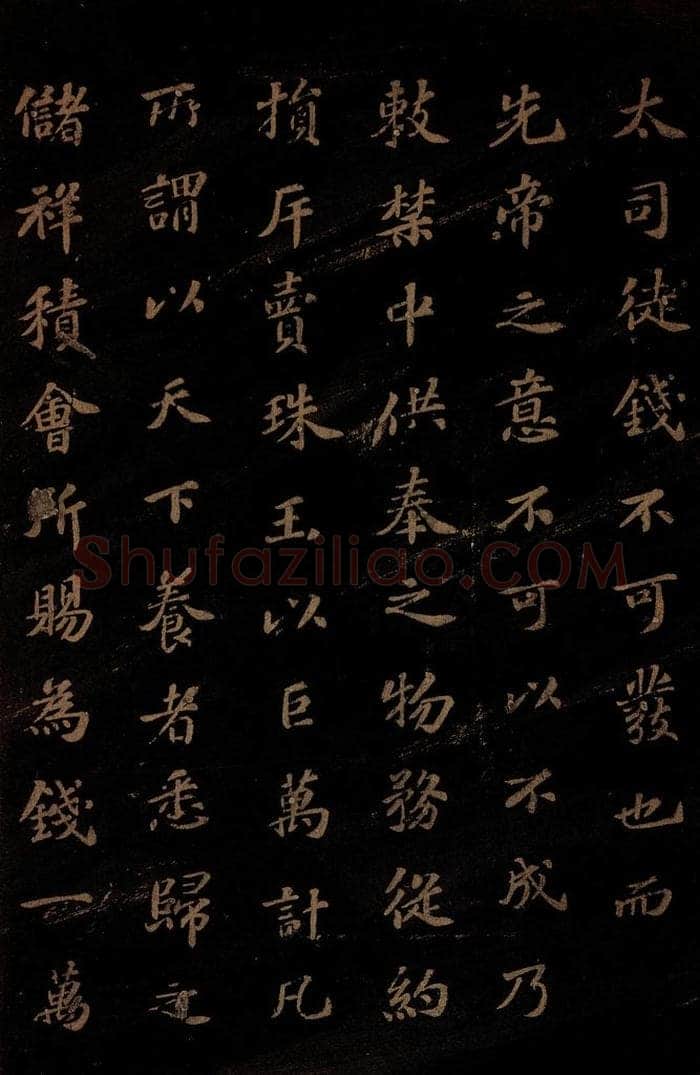 太司徒錢不可發也而
先帝之意不可以不成乃
敕禁中供奉之物務從約
損斥賣珠玉以巨萬計凡
所謂以天下養者悉歸之
儲祥積會所賜為錢一萬
Shufaziliao.COM